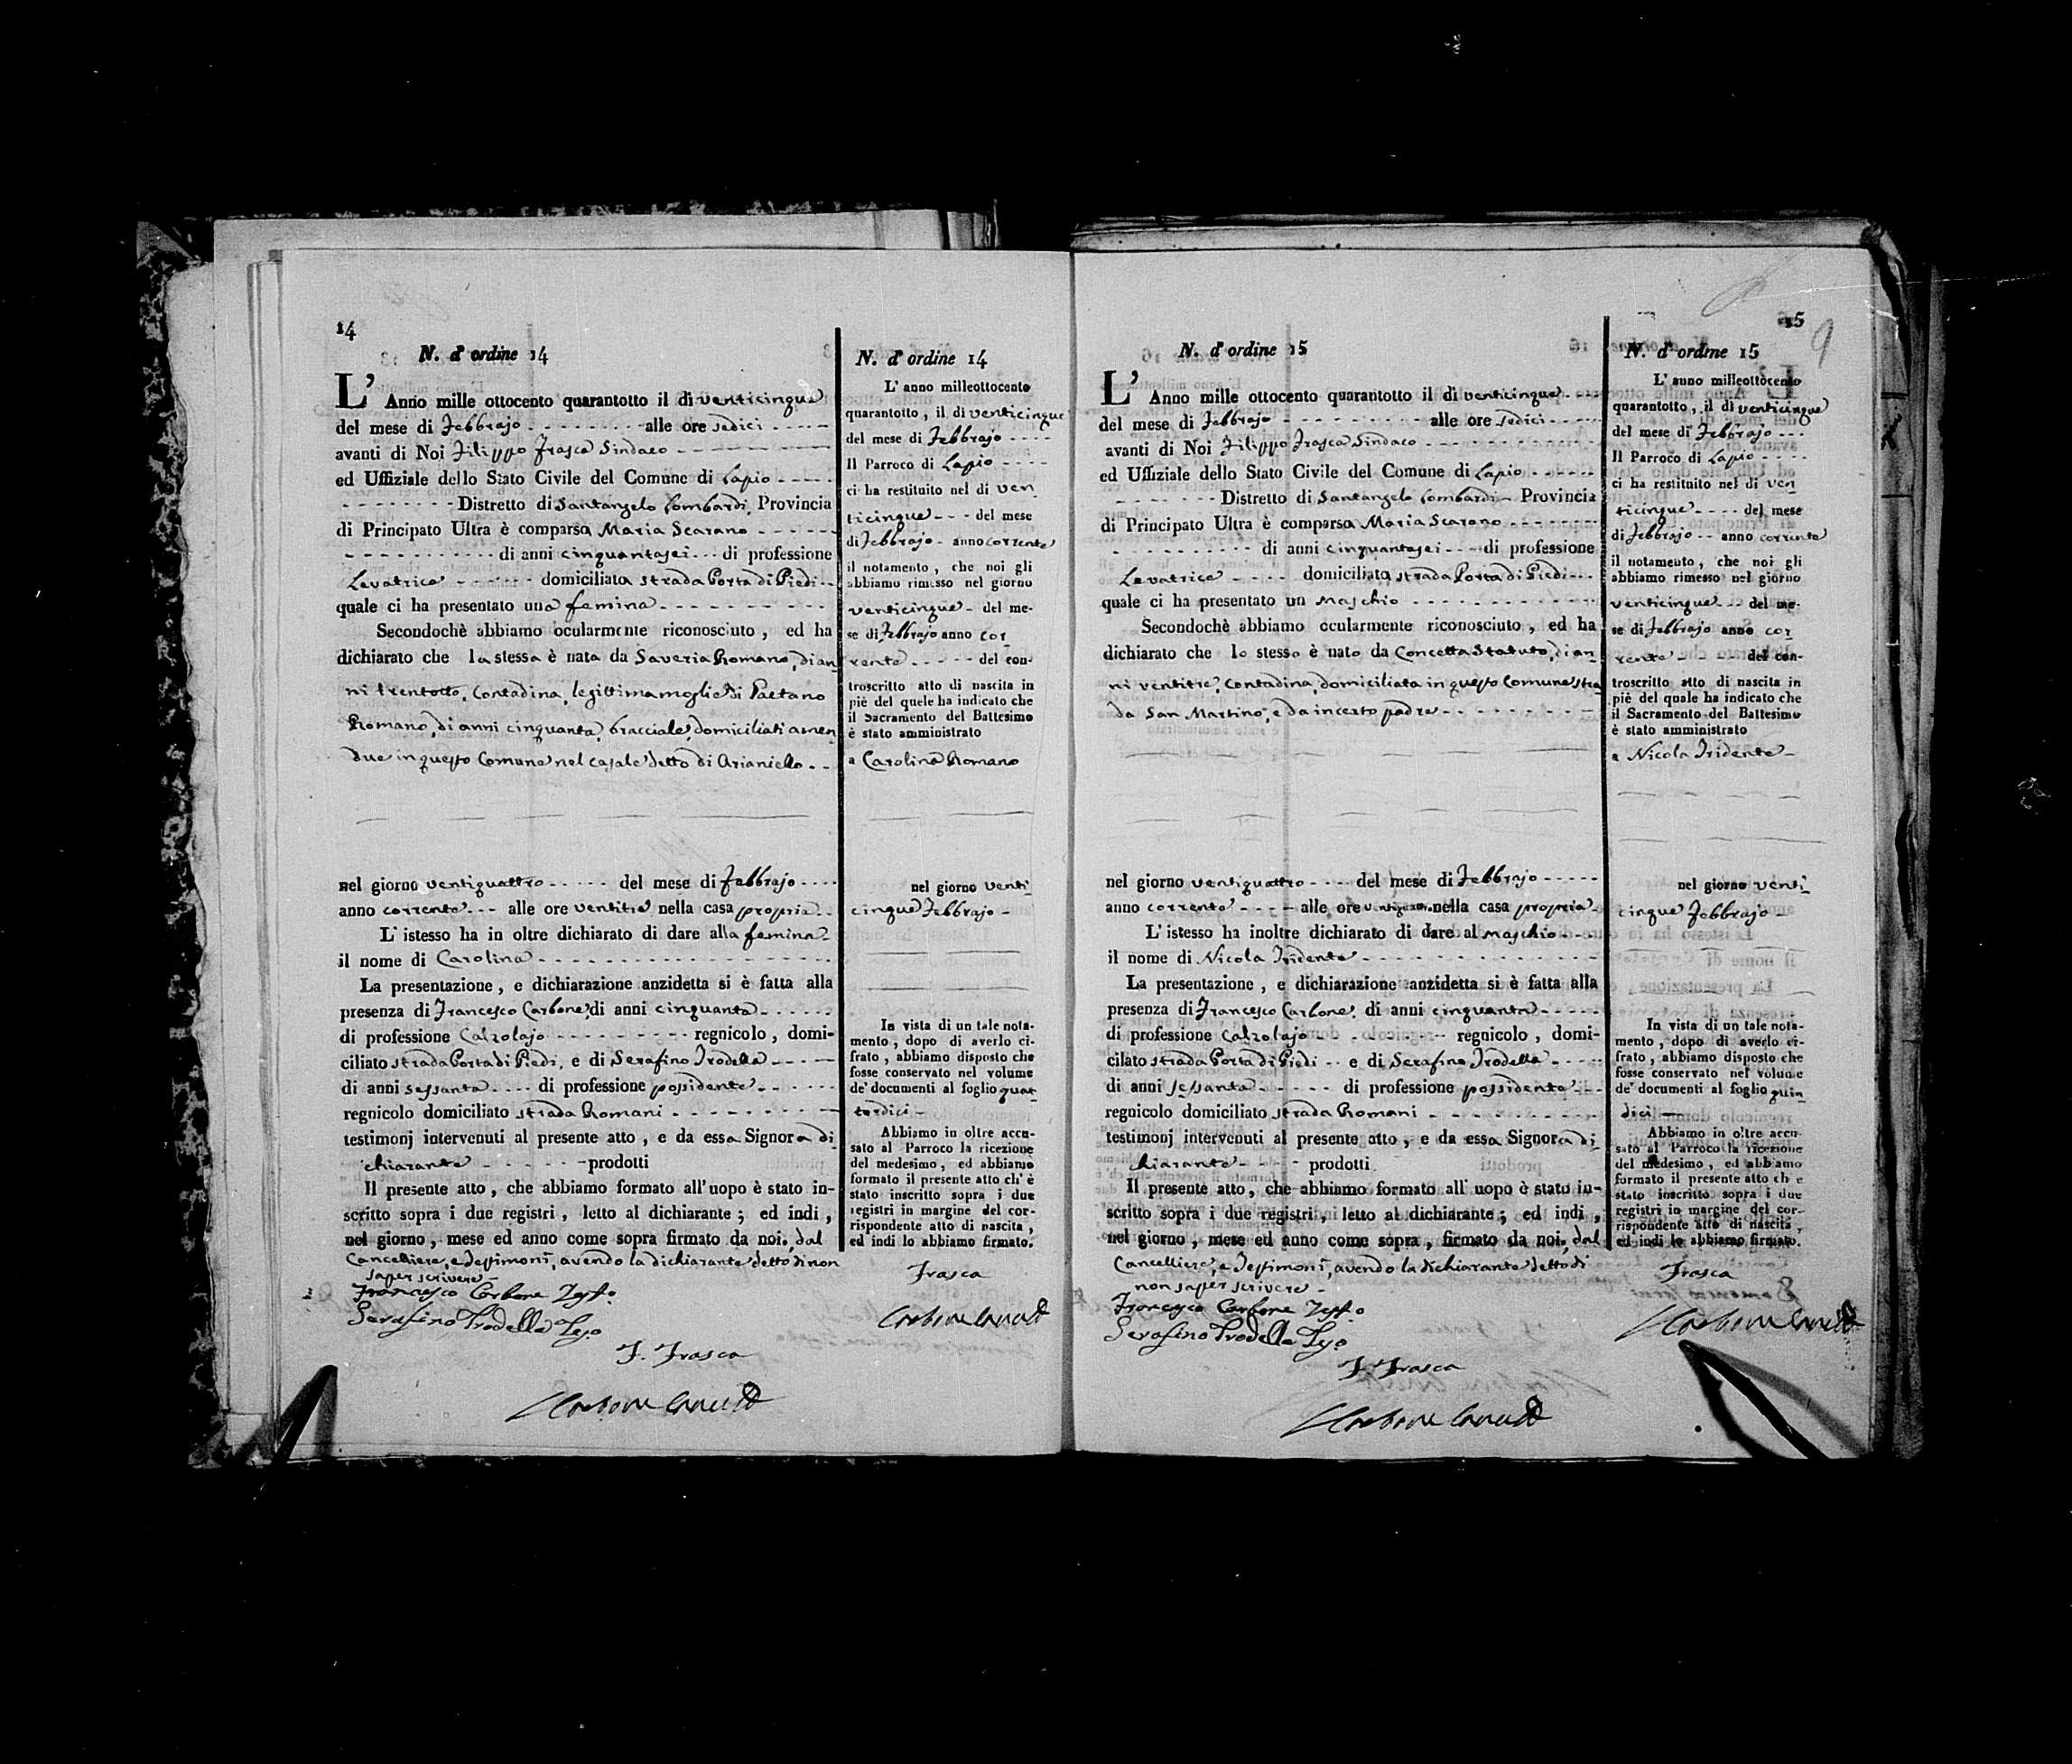 14
N. d'ordine 14
L' Anno mille ottocento quarantotto il di venticinque
del mese di Febbrajo - - - alle ore sedici - - -
avanti di Noi Filippo Frasca Sindaco - - -
ed Uffiziale dello Stato Civile del Comune di Lapio - - -
- - - Distretto di Santangelo Lombardi, Provincia
di Principato Ultra è comparsa Maria Scarano - - -
- - - di anni cinquantasei - - - di professione
Levatrice - - - domiciliata strada Porta di Piedi - -
quale ci ha presentato una femina - - -
Secondochè abbiamo ocularmente riconosciuto, ed ha
dichiarato che la stessa è nata da Saveria Romano, di an
ni trentotto, Contadina, legittima moglie di Gaetano
Romano, di anni cinquanta, bracciale, domiciliati amen
due in questo Comune nel casale detto di Arianiello - -
nel giorno ventiquattro - - - del mese di Febbrajo - - -
anno corrente - - - alle ore ventitre nella casa propria - -
L' istesso ha in oltre dichiarato di dare alla femina -
il nome di Carolina - - -
La presentazione, e dichiarazione anzidetta si è fatta alla
presenza di Francesco Carbone, di anni cinquanta - - -
di professione Calzolajo - - - regnicolo, domi-
ciliato strada Porta di Piedi, e di Serafino Trodella - - -
di anni sessanta - - - di professione possidente - - -
regnicolo domiciliato strada Romani - - -
testimonj intervenuti al presente atto, e da essa Signora di
chiarante - - - prodotti
Il presente atto, che abbiamo formato all'uopo è stato in-
scritto sopra i due registri, letto al dichiarante; ed indi,
nel giorno, mese ed anno come sopra firmato da noi, dal
Cancelliere, e Testimonî, avendo la dichiarante detto di non
saper scrivere -
Francesco Carbone Testo
Serafino Trodella Teso
F. Frasca
Carbone
N. d'ordine 14
L' anno milleottocento
quarantotto, il di venticinque
del mese di Febbrajo - - -
Il Parroco di Lapio - - -
ci ha restituito nel di ven
ticinque - - - del mese
di Febbrajo - anno corrente
il notamento, che noi gli
abbiamo rimesso nel giorno
venticinque - del me-
se di Febbrajo anno cor
rente - - - del con-
troscritto atto di nascita in
piè del quele ha indicato che
il Sacramento del Battesimo
è stato amministrato
a Carolina Romano
nel giorno venti
cinque Febbrajo -
In vista di un tale nota-
mento, dopo di averlo ci-
frato, abbiamo disposto che
fosse conservato nel volume
de' documenti al foglio quat
tordici -
Abbiamo in oltre accu-
sato al Parroco la ricezione
del medesimo, ed abbiamo
formato il presente atto ch' è
stato inscritto sopra i due
registri in margine del cor-
rispondente atto di nascita,
ed indi lo abbiamo firmato.
Frasca
Carbone
15
9
N. d'ordine 15
L' Anno mille ottocento quarantotto il di venticinque - - -
del mese di Febbrajo - - - alle ore sedici - - -
avanti di Noi Filippo Frasca Sindaco - - -
ed Uffiziale dello Stato Civile del Comune di Lapio - - -
- - - Distretto di Santangelo Lombardi - Provincia
di Principato Ultra è comparsa Maria Scarano - - -
- - - di anni cinquantasei - - - di professione
Levatrice - - - domiciliata strada Porta di Piedi - - -
quale ci ha presentato un maschio - - -
Secondochè abbiamo ocularmente riconosciuto, ed ha
dichiarato che lo stesso è nato da Concetta Statuto, di an
ni ventitre, Contadina, domiciliata in questo Comune stra
da San Martino, e da incerto padre - - -
nel giorno ventiquattro - - - del mese di Febbrajo - - -
anno corrente - - - alle ore nella casa propria -
L' istesso ha inoltre dichiarato di dare al maschio - - -
il nome di Nicola Tridente - - -
La presentazione, e dichiarazione anzidetta si è fatta alla
presenza di Francesco Carbone, di anni cinquanta - - -
di professione Calzolajo - - - regnicolo, domi-
cilato strada Porta di Piedi - - e di Serafino Trodella - - -
di anni sessanta - - - di professione possidente - - -
regnicolo domiciliato strada Romani - - -
testimonj intervenuti al presente atto, e da essa Signora di
chiarante - - - prodotti
Il presente atto, che abbiamo formato all' uopo è stato in-
scritto sopra i due registri, letto al dichiarante; ed indi,
nel giorno, mese ed anno come sopra, firmato da noi, dal
Cancelliere, e Testimonî, avendo la dichiarante detto di
non saper scrivere -
Francesco Carbone Testo
Serafino Trodella Teso
F. Frasca
Carbone
N. d'ordine 15
L' anno milleottocento
quarantotto, il di venticinque
del mese di Febbrajo - - -
Il Parroco di Lapio - - -
ci ha restituito nel di ven
ticinque - - - del mese
di Febbrajo - - anno corrente
il notamento, che noi gli
abbiamo rimesso nel giorno
venticinque - - - del me-
se di Febbrajo anno cor
rente - - - del con-
troscritto atto di nascita in
piè del quale ha indicato che
il Sacramento del Battesimo
è stato amministrato
a Nicola Tridente -
nel giorno venti
cinque Febbrajo -
In vista di un tale nota-
mento, dopo di averlo ci-
frato, abbiamo disposto che
fosse conservato nel volume
de' documenti al foglio quin
dici -
Abbiamo in oltre accu-
sato al Parroco la ricezione
del medesimo, ed abbiamo
formato il presente atto ch' è
stato inscritto sopra i due
registri in margine del cor-
rispondente atto di nascita,
ed indi lo abbiamo firmato.
Frasca
Carbone